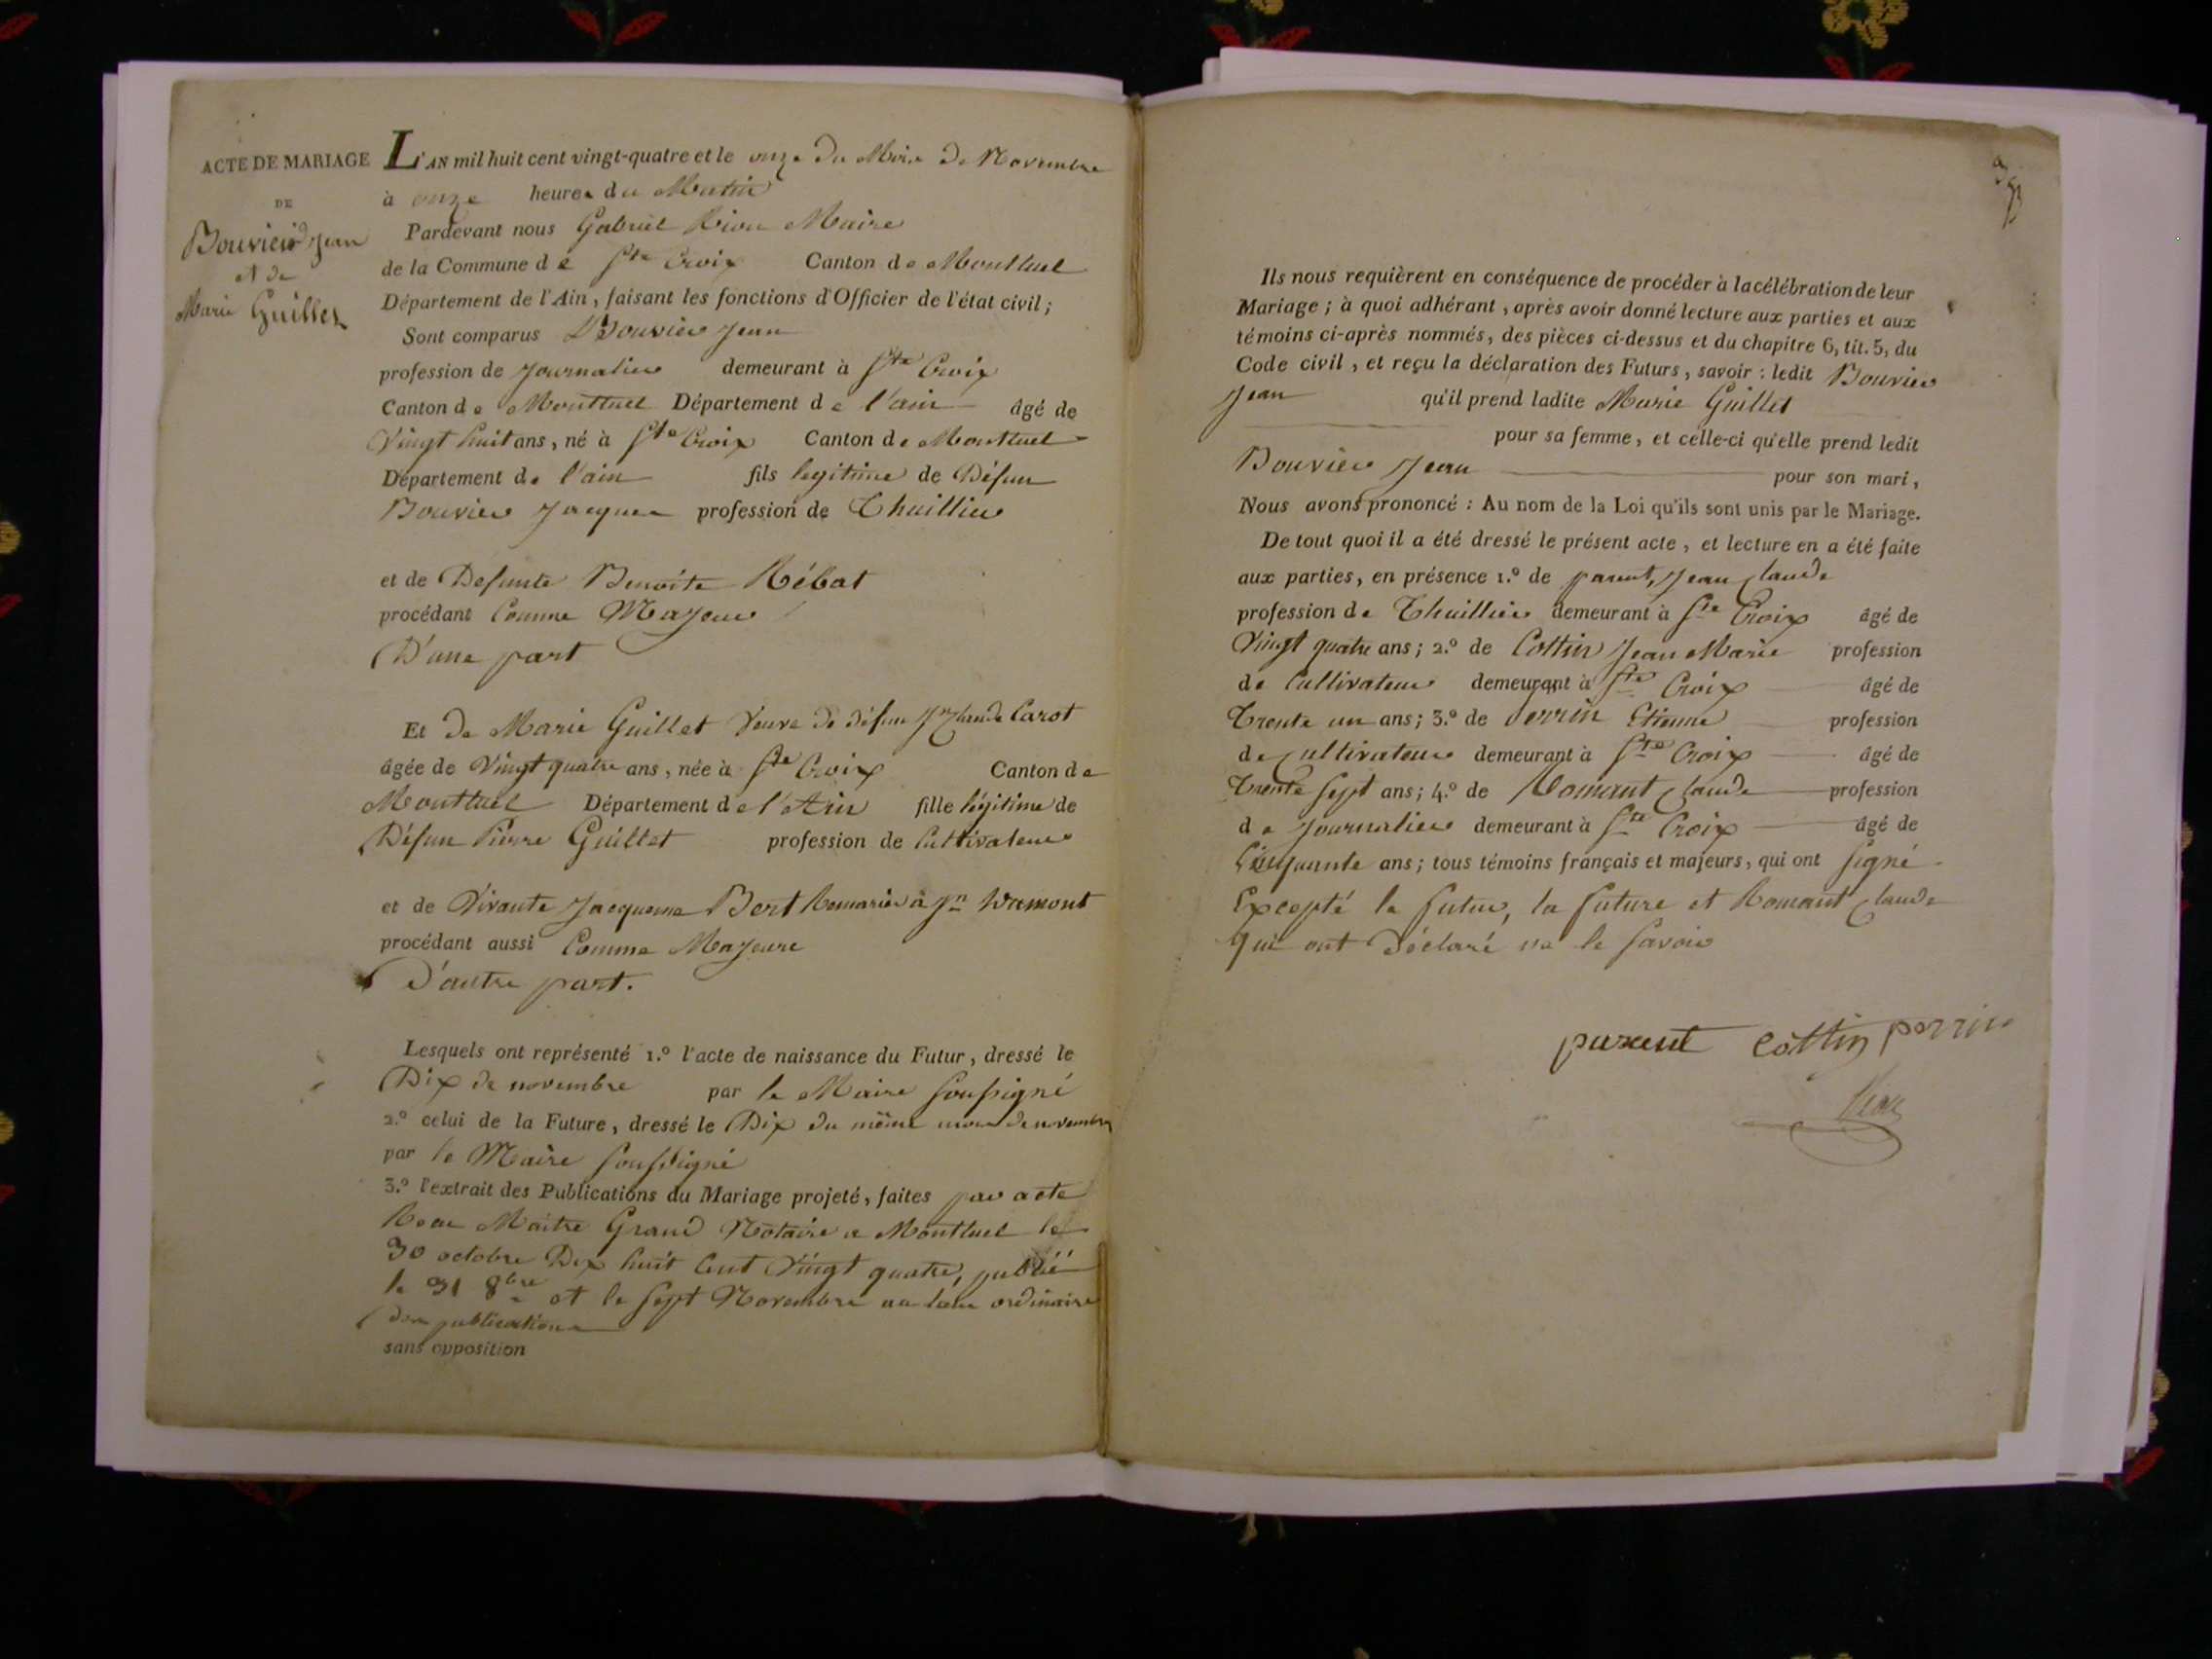 ACTE DE MARIAGE
DE
Bouvier Jean
et de
Marie Guillet
L'AN mil huit cent vingt-quatre et le onze du Mois de Novembre
à onze heures du Matin
Pardevant nous Gabriel Maire
de la Commune de Ste Croix Canton de Montluel
Département de l'Ain, faisant les fonctions d'Officier de l'état civil;
Sont comparus Bouvier Jean
profession de Journalier demeurant à Ste Croix
Canton de Montluel Département de l'ain âgé de
Vingt huit ans, né à Ste Croix Canton de Montluel
Département de l'ain fils legitime de Défun
Bouvier Jacques profession de Thuillier
et de Defunte Benoite Rébat
procédant Comme Majeur
D'une part
Et de Marie Guillet Veuve de défun Jn Claude Carot
âgée de Vingt quatre ans, née à Ste Croix Canton de
Montluel Département de l'Ain fille légitime de
Défun Pierre Guillet profession de Cultivateur
et de Vivante Jacquema Bert Remariée à Jn Wamont
procédant aussi Comme Majeure
D'autre part.
Lesquels ont représenté 1.º l'acte de naissance du Futur, dressé le
Dix de novembre par le Maire Soussigné
2.º celui de la Future, dressé le Dix du même mois de novembre
par le Maire Soussigné
3.º l'extrait des Publications du Mariage projeté, faites par acte
Reçu Maitre Grand Notaire a Montluel le
30 octobre Dix huit Cent Vingt quatre, publié
le 31 8bre et le Sept Novembre au lieu ordinaire
des publications
sans opposition
Ils nous requièrent en conséquence de procéder à la célébration de leur
Mariage; à quoi adhérant, après avoir donné lecture aux parties et aux
témoins ci-après nommés, des pièces ci-dessus et du chapitre 6, tit. 5, du
Code civil, et reçu la déclaration des Futurs, savoir: ledit Bouvier
Jean qu'il prend ladite Marie Guillet
pour sa femme, et celle-ci qu'elle prend ledit
Bouvier Jean pour son mari,
Nous avons prononcé: Au nom de la Loi qu'ils sont unis par le Mariage.
De tout quoi il a été dressé le présent acte, et lecture en a été faite
aux parties, en présence 1.º de parent, Jean Claude
profession de Thuillier demeurant à Ste Croix âgé de
Vingt quatre ans; 2.º de Cottin Jean Marie profession
de Cultivateur demeurant à Ste Croix âgé de
Trente un ans; 3.º de perrin Etienne profession
de Cultivateur demeurant à Ste Croix âgé de
Trente Sept ans; 4.º de Romant Claude profession
de Journalier demeurant à Ste Croix âgé de
Cinquante ans; tous témoins français et majeurs, qui ont Signé
Excepté le futur, la future et Romant Claude
qui ont Déclaré ne le Savoir
parent Cottin perrin